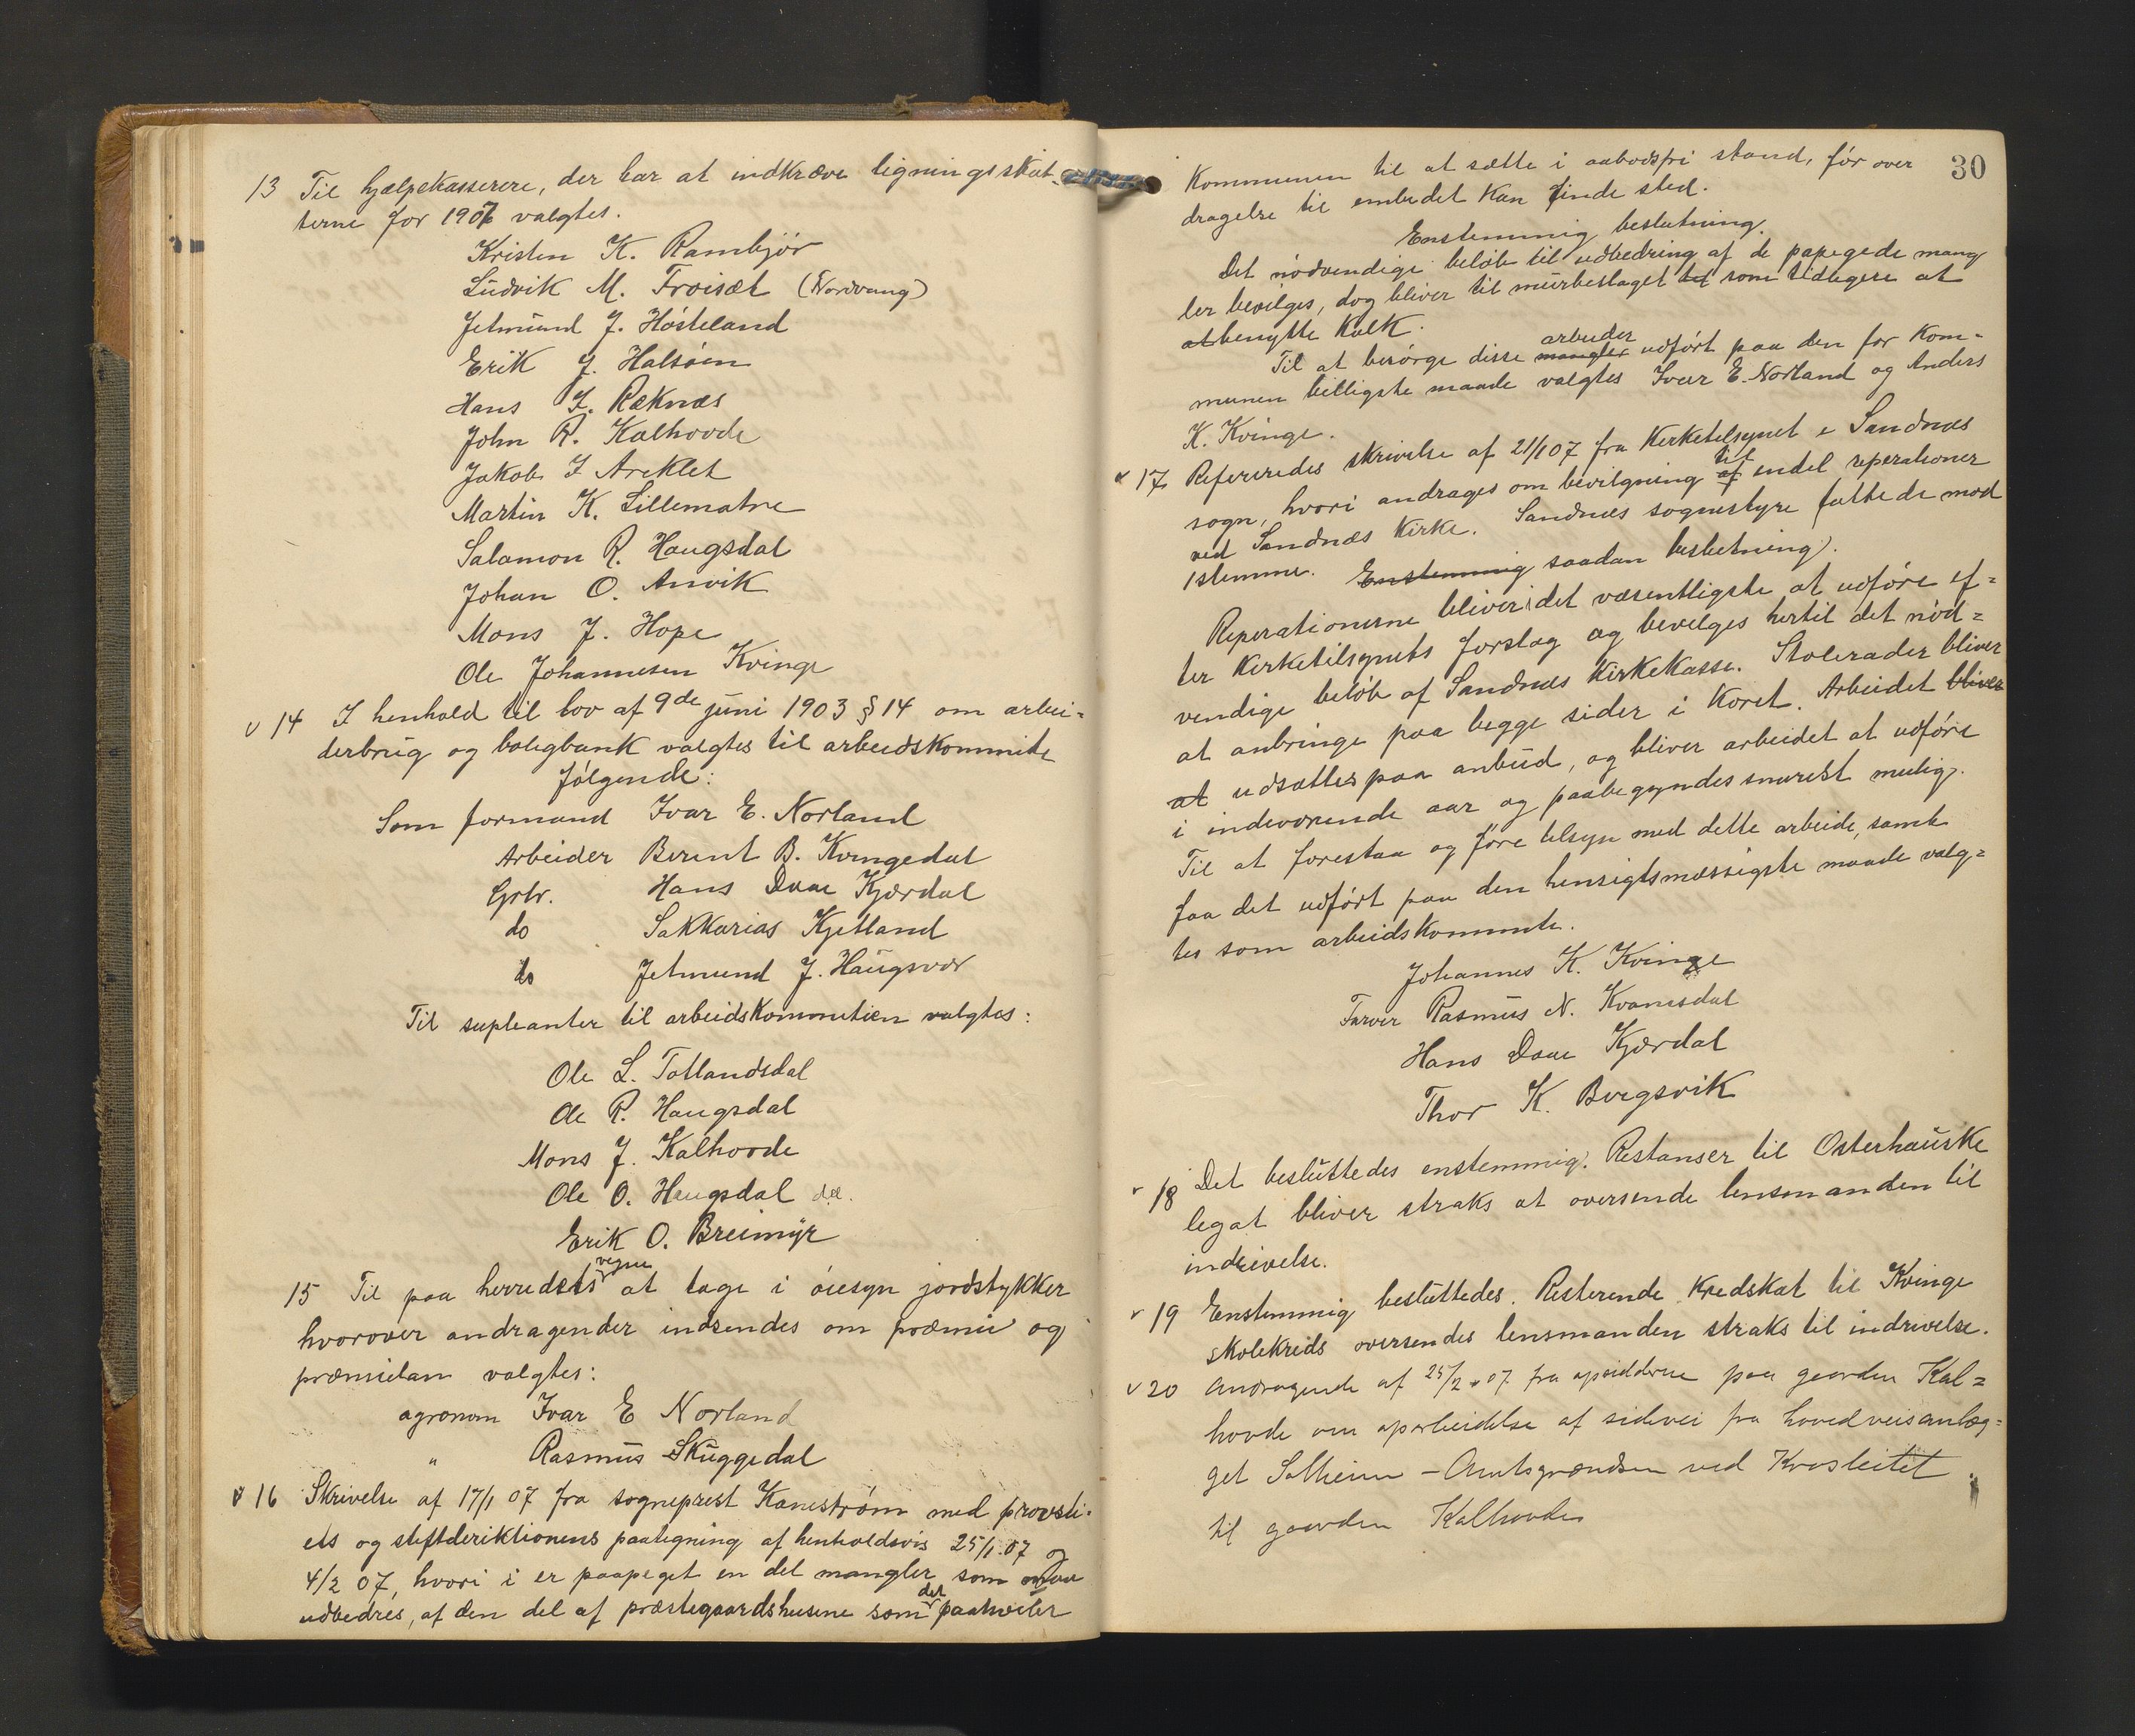 13 Til hjælpekasserere, der har at indkræve ligningsskat-
terne for 1907 valgtes.
Kristen K. Rambjør
Ludvik M. Frøisæt (Nordvang)
Jetmund J. Høsteland
Erik J. Halsøen
Hans J. Ræknæs
John R. Kalhovde
Jakob J Areklet
Martin K. Lillematre
Salamon R. Haugsdal
Johan O. Anvik
Mons J. Hope
Ole Johannesen Kvinge
v 14 I henhold til lov af 9de juni 1903 § 14 om arbei-
derbrug og boligbank valgtes til arbeidskommite
følgende:
Som formand Ivar E. Norland
Arbeider Berent B. Kvingedal
Grbr. Hans Daae Kjærdal
do Sakkarias Kjetland
do Jetmund J. Haugsvær
Til supleanter til arbeidskommitien valgtes:
Ole L. Totlandsdal
Ole R. Haugsdal
Mons J. Kalhovde
Ole O. Haugsdal
Erik O. Breimyr
15 Til paa herredets vegne at tage i øiesyn jordstykker
hvorover andragender indsendes om præmie og
præmielaan valgtes:
agronom Ivar E Norland
" Rasmus Skuggedal
v 16 Skrivelse af 17/1 07 fra sogneprest Kanestrøm med provsti-
ets og stiftderiktionens paategning af henholdsvis 25/1.07 og
4/2 07, hvori i er paapeget en del mangler som maa
udbedres, af den del af præstegaardshusene som det paahviler
30
Kommunen til at sætte i aabodsfri stand, før over
dragelse til embedet kan finde sted.
Enstemmig beslutning.
Det nødvendige beløb til udbedring af de papegede mang
ler bevilges, dog bliver til murbeslaget til som tidligere at
at benytte kalk.
Til at besørge disse mangler arbeider udført paa den for Kom-
munen billigste maade valgtes Ivar E. Norland og Anders
K. Kvinge.
v 17 Refereredes skrivelse af 21/1 07 fra Kirketilsynet i Sandnes
sogn, hvori andrages om bevilgning af til endel reperationer
ved Sandnæs Kirke. Sandnæs sognestyre fattede mod
1 stemme. Enstemmig saadan beslutning.
Reperationerne bliver i det væsentligste at udføre ef-
ter Kirketilsynets forslag og bevilges hertil det nød-
vendige beløb af Sandnæs Kirkekasse. Stolerader bliver
at anbringe paa begge sider i Koret. Arbeidet bliver
at udsættes paa anbud, og bliver arbeidet at udføre
i indeværende aar og paabegyndes snarest mulig.
Til at forestaa og føre tilsyn med dette arbeide, samt
faa det udført paa den hensigtsmæssigste maade valg-
tes som arbeidskommite.
Johannes K. Kvinge
Farver Rasmus N. Kvamsdal
Hans Daae Kjærdal
Thor K. Bergsvik
v 18 Det besluttedes enstemmig. Restanser til Osterhauske
legat bliver straks at oversende lensmanden til
indrivelse.
v 19 Enstemmig besluttedes. Resterende Kredskat til Kvinge
skolekreds oversendes lensmanden straks til indrivelse.
v 20 Andragende af 25/2 07 fra opsidderne paa gaarden Kal-
hovde om oparbeidelse af sidevei fra hovedveisanlæg-
get Solheim - Amtsgrændsen ved Krosleitet
til gaarden Kalhovde